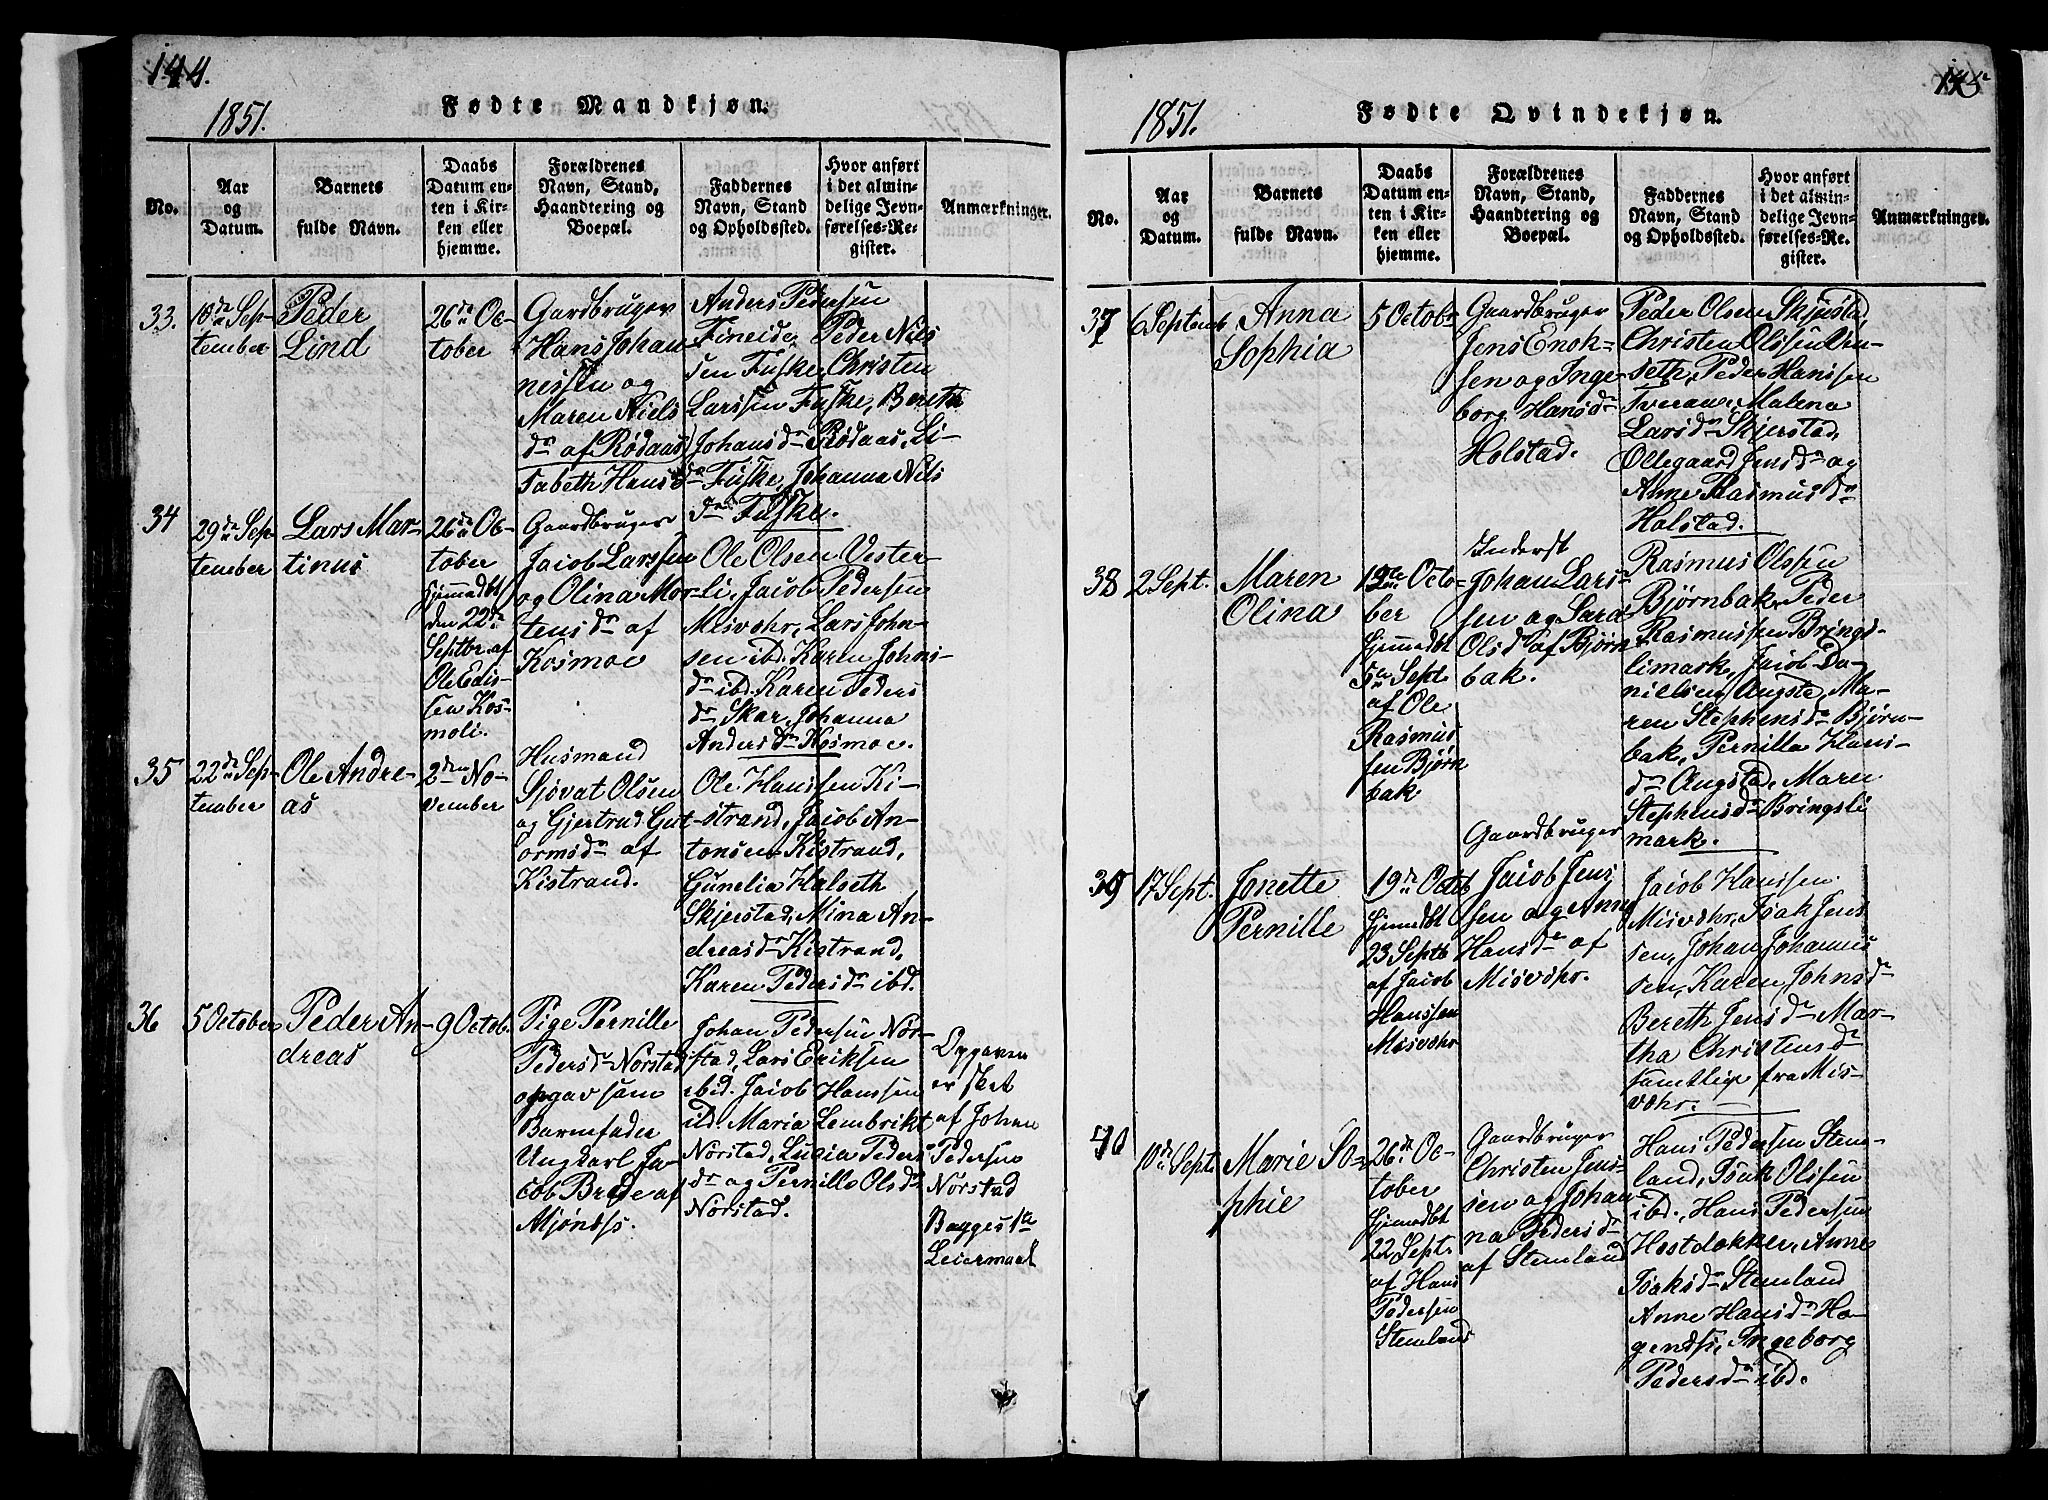 144.
1851.
Fødte Mandkjøn.
No.
Aar
og
Datum.
Barnets
fulde Navn.
Daabs
Datum en-
ten i Kir-
ken eller
hjemme.
Forældrenes
Navn, Stand,
Haandtering og
Boepæl.
Faddernes
Navn, Stand
og Opholdssted.
Hvor anført
i det almin-
delige Jevn-
førelses-Re-
gister.
Anmærkninger.
33.
10de Sep-
tember
Peder
Lind
26de Oc-
tober
Gardbruger
Hans Johan-
nessen og
Maren Niels
dr af Rødaas
Anders Pedersen
Fineide, Peder Nils
sen Fuske, Christen
Larssen Fuske, Bereth
Johansdr Rødaas, Li-
sabeth Hansdr Fuske, Johanna Nils
dr Fuske.
34
29de Sep-
tember
Lars Mar-
tinus
26de Oc-
tober
Hjemmedbt
den 22de
Septbr. af
Ole Edis-
sen Kos-
moli.
Gaardbruger
Jacob Larssen
og Olina Mor-
tensdr af
Kosmoe
Ole Olsen Vester-
li, Jacob Pedersen
Misvohr, Lars John-
sen ibd. Karen Johns-
dr ibd. Karen Peders
dr Skar, Johanna
Andersdr Kosmoe.
35
22de Sep-
tember
Ole Andre-
as
2den No-
vember
Husmand
Sjovat Olsen
og Gjertrud Gut-
ormsdr af
Kistrand.
Ole Hanssen Ki-
strand, Jacob An-
tonsen Kistrand,
Gunelia Halseth
Skjerstad, Mina An-
dreasdr Kistrand,
Karen Pedersdr ibd.
36
5 October
Peder An-
dreas
9 Octob.
Pige Pernille
Pedersdr Norstad
opgav som
Barnefader
Ungkarl Ja-
cob Brede af
Mjønæs.
Johan Pedersen Nor-
stad, Lars Eriksen
ibd. Jacob Hanssen
ibd. Maria Lembrikt
Norstad, Lucia Peders
dr og Pernille Olsdr
Norstad.
Opgaven
er sket
af Johan
Pedersen
Norstad
Begges 1te
Leiermaal
145
1851.
Fødte Qvindekjøn.
No.
Aar
og
Datum.
Barnets
fulde Navn.
Daabs
Datum en-
ten i Kir-
ken eller
hjemme.
Forældrenes
Navn, Stand,
Haandtering og
Boepæl.
Faddernes
Navn, Stand
og Opholdssted.
Hvor anført
i det almin-
delige Jevn-
førelses-Re-
gister.
Anmærkninger.
37
6 Septemb
Anna
Sophia
5 Octobr
Gaardbruger
Jens Enok-
sen og Inge-
borg Hansdr
Holstad.
Peder Olsen Skjerstad
Christen Olssen Ven-
seth, Peder Hanssen
Tveraae, Malena
Larsdr Skjerstad,
Ollegaard Jensdr og
Anne Rasmusdr
Holstad.
38
2 Sept.
Maren
Olina
12te Octo-
ber
Hjemmedbt
5te Sept.
af Ole
Rasmus
sen Bjørn
bak
Inderst
Johan Lars-
sen og Sara
Olsdr af Bjørn
bak.
Rasmus Olssen
Bjørnbak, Peder
Rasmussen Brings-
limark, Jacob Da-
nielsen Augste, Ma-
ren Stephensdr Bjørn-
bak, Pernilla Hans-
dr Augstad, Maren
Stephensdr Bringsli
mark.
39
17 Sept.
Jonette
Pernille
19de Octob
Hjemedbt
23 Septb
af Jacob
Hanssen
Misvohr
Gaardbruger
Jacob Jens-
sen og Anne
Hansdr af
Misvohr.
Jacob Hanssen
Misvohr, Isak Jens
sen, Johan Johannes
sen, Karen Johnsdr
Bereth Jensdr Mar-
tha Christensdr
samtlige fra Mis-
vohr.
40
10de Sept.
Marie So-
phie
26de Oc-
tober
Hjemedbt
22 Sept.
af Hans
Pedersen
Stemland
Gaardbruger
Christen Jens-
sen og Johan-
na Pedersdr
af Stemland
Hans Pedersen Stem-
land, Isak Olssen
ibd., Hans Pedersen
Hestdokken, Anne
Isaksdr Stemland
Anne Hansdr Ho-
genæs, Ingeborg
Pedersdr ibd.